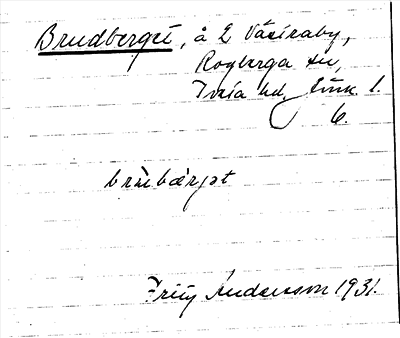 Brudberget, å L Västraby,
Rogberga sn,
Tveta hd, Jönk. l.
6.
brübærjət
Fritz Andersson 1931.